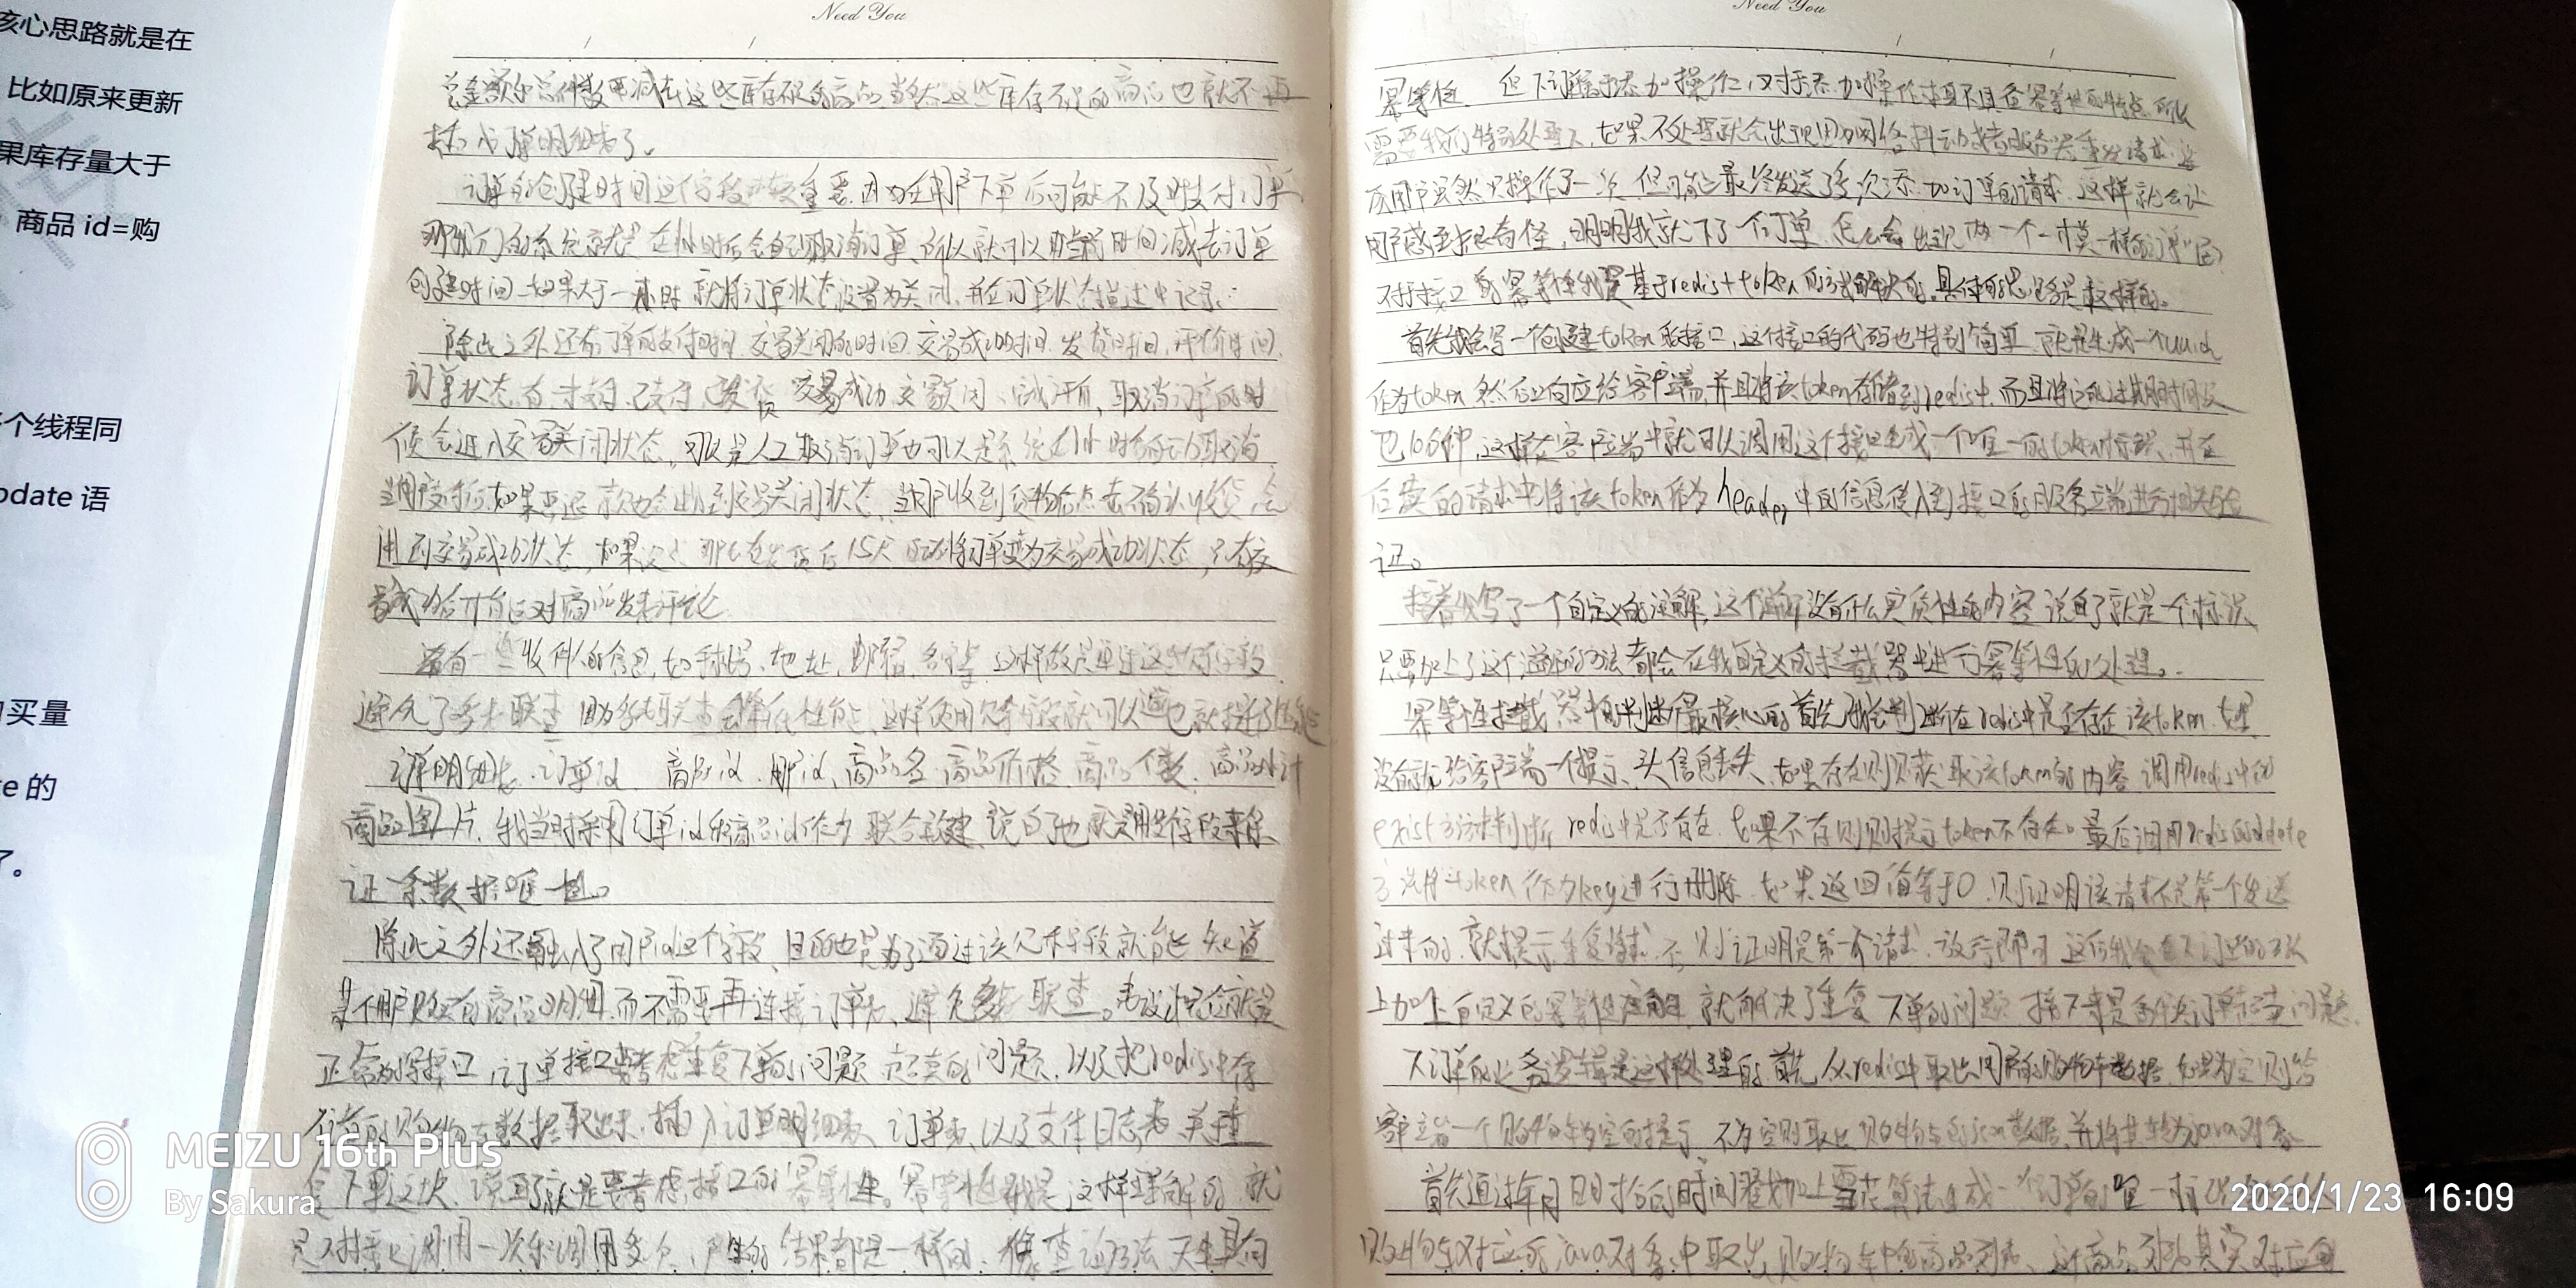 核心思路就是在
比如原来更新
果库存量大于
商品 id=购
个线程同
pdate 语
买量
te 的
了。
Need You
总金额和总件数要减去这些库存不足的商品,当然这些库存不足的商品也就不再
插入订单明细表了。
订单的创建时间这个字段比较重要,因为在用户下单后可能不及时支付订单
那我们的系统就是在1小时后会自动取消订单,所以就可以用当前时间减去订单
创建时间,如果大于一小时就将订单状态设置为关闭,并在订单状态描述中记录.
除此之外还有订单的支付时间.交易关闭的时间.交易成功时间.发货时间,评价时间.
订单状态有.未支付.已支付.已发货.交易成功.交易关闭、 取消订单的时
候会进入交易关闭状态,可以是人工取消订单也可以是系统在1小时自动取消
当用户支付后如果要退款也会进到交易关闭状态,当用户收到货物后点击了确认收货,会
进到交易成功状态,如果没点那么在发货后15天自动将订单变为交易成功状态,只有交
易成功后才能对商品发表评论
还有一些收件人的信息,如手机号、地址、邮编、 这样做是 这些冗余字段
避免了多表联查,因为多表联查会降低性能,这样使用冗余字段就可以 也就提升了性能
订单明细表.订单id.商品id.用户id、商品名、商品价格.商品个数.商品小计
商品图片.我当时采用订单id和商品id作为联合主键,说白了也就是用两个字段来保
证一条数据唯一性。
除此之外还融入了用户id这个字段,目的也是为了通过该冗余字段就能知道
某个用户购买的商品明细.而不需要再连接订单表,避免多表联查。
正常的写接口,订单接口要考虑重复下单的问题.超卖的问题.以及把redis中存
储的购物车数据取出来,插入订单明细表、订单表,以及支付日志表.关于重
复下单这块.说白了就是要考虑接口的幂等性。幂等性我是这样理解的.就
是对接口调用一次和调用多次,产生的结果都是一样的.像查询方法天生具有
Need You
幂等性. 但下订单属于添加操作,对于添加操作本身不具有幂等性的特点.所以
需要我们特别处理下,如果不处理就会出现因为网络抖动或者服务器重发请求.造
成用户虽然只操作了一次.但可能最终发送了多次添加订单的请求.这样就会让
用户感到很奇怪,明明我就下了一个订单.怎么会出现两个一模一样的订单呢
对于接口的幂等性我是基于redis+token的方式解决的.具体的思路是这样的。
首先我会写一个创建token的接口,这个接口的代码也特别简单.就是生成一个uuid
作为token.然后响应给客户端,并且将该token存储到redis中,而且将它的过期时间设
为10分钟,这样在客户端中就可以调用这个接口生成一个唯一的token标识,并在
后续的请求中将该token作为header中的信息传入到接口的服务端进行相关验
证。
接着我写了一个自定义的注解,这个注解没有什么实质性的内容.说白了就是一个标识.
只要加上了这个注解的方法都会在我自定义的拦截器中进行幂等性的处理。
幂等性拦截器中的判断是最核心的.首先我会判断在redis中是否存在该token.如果
没有就给客户端一个提示、头信息丢失.如果存在则获取该token的内容.调用redis中的
exist方法来判断redis中是否存在.如果不存在则提示token不存在。最后调用redis的delete
方法将token作为key进行删除.如果返回值等于0.则证明该请求不是第一个发送
过来的,就提示重复请求.否则证明是第一个请求.放行即可.这后我会在下订单的方法
上加上自定义的幂等性注解.就解决了重复下单的问题.接下来是解决订单超卖问题.
下订单的业务逻辑是这样处理的.首先.从redis中取出用户的购物车数据.如果为空则给
客户端一个购物车为空的提示.不为空则取出购物车的json数据,并将其转为java对象
首先通过年月日时分秒的时间戳加上雪花算法生成一个订单的唯一标识
购物车对应的java对象中取出购物车中的商品列表、这个商品列表其实对应的
MEIZU 16th Plus
By Sakura
2020/1/23 16:09